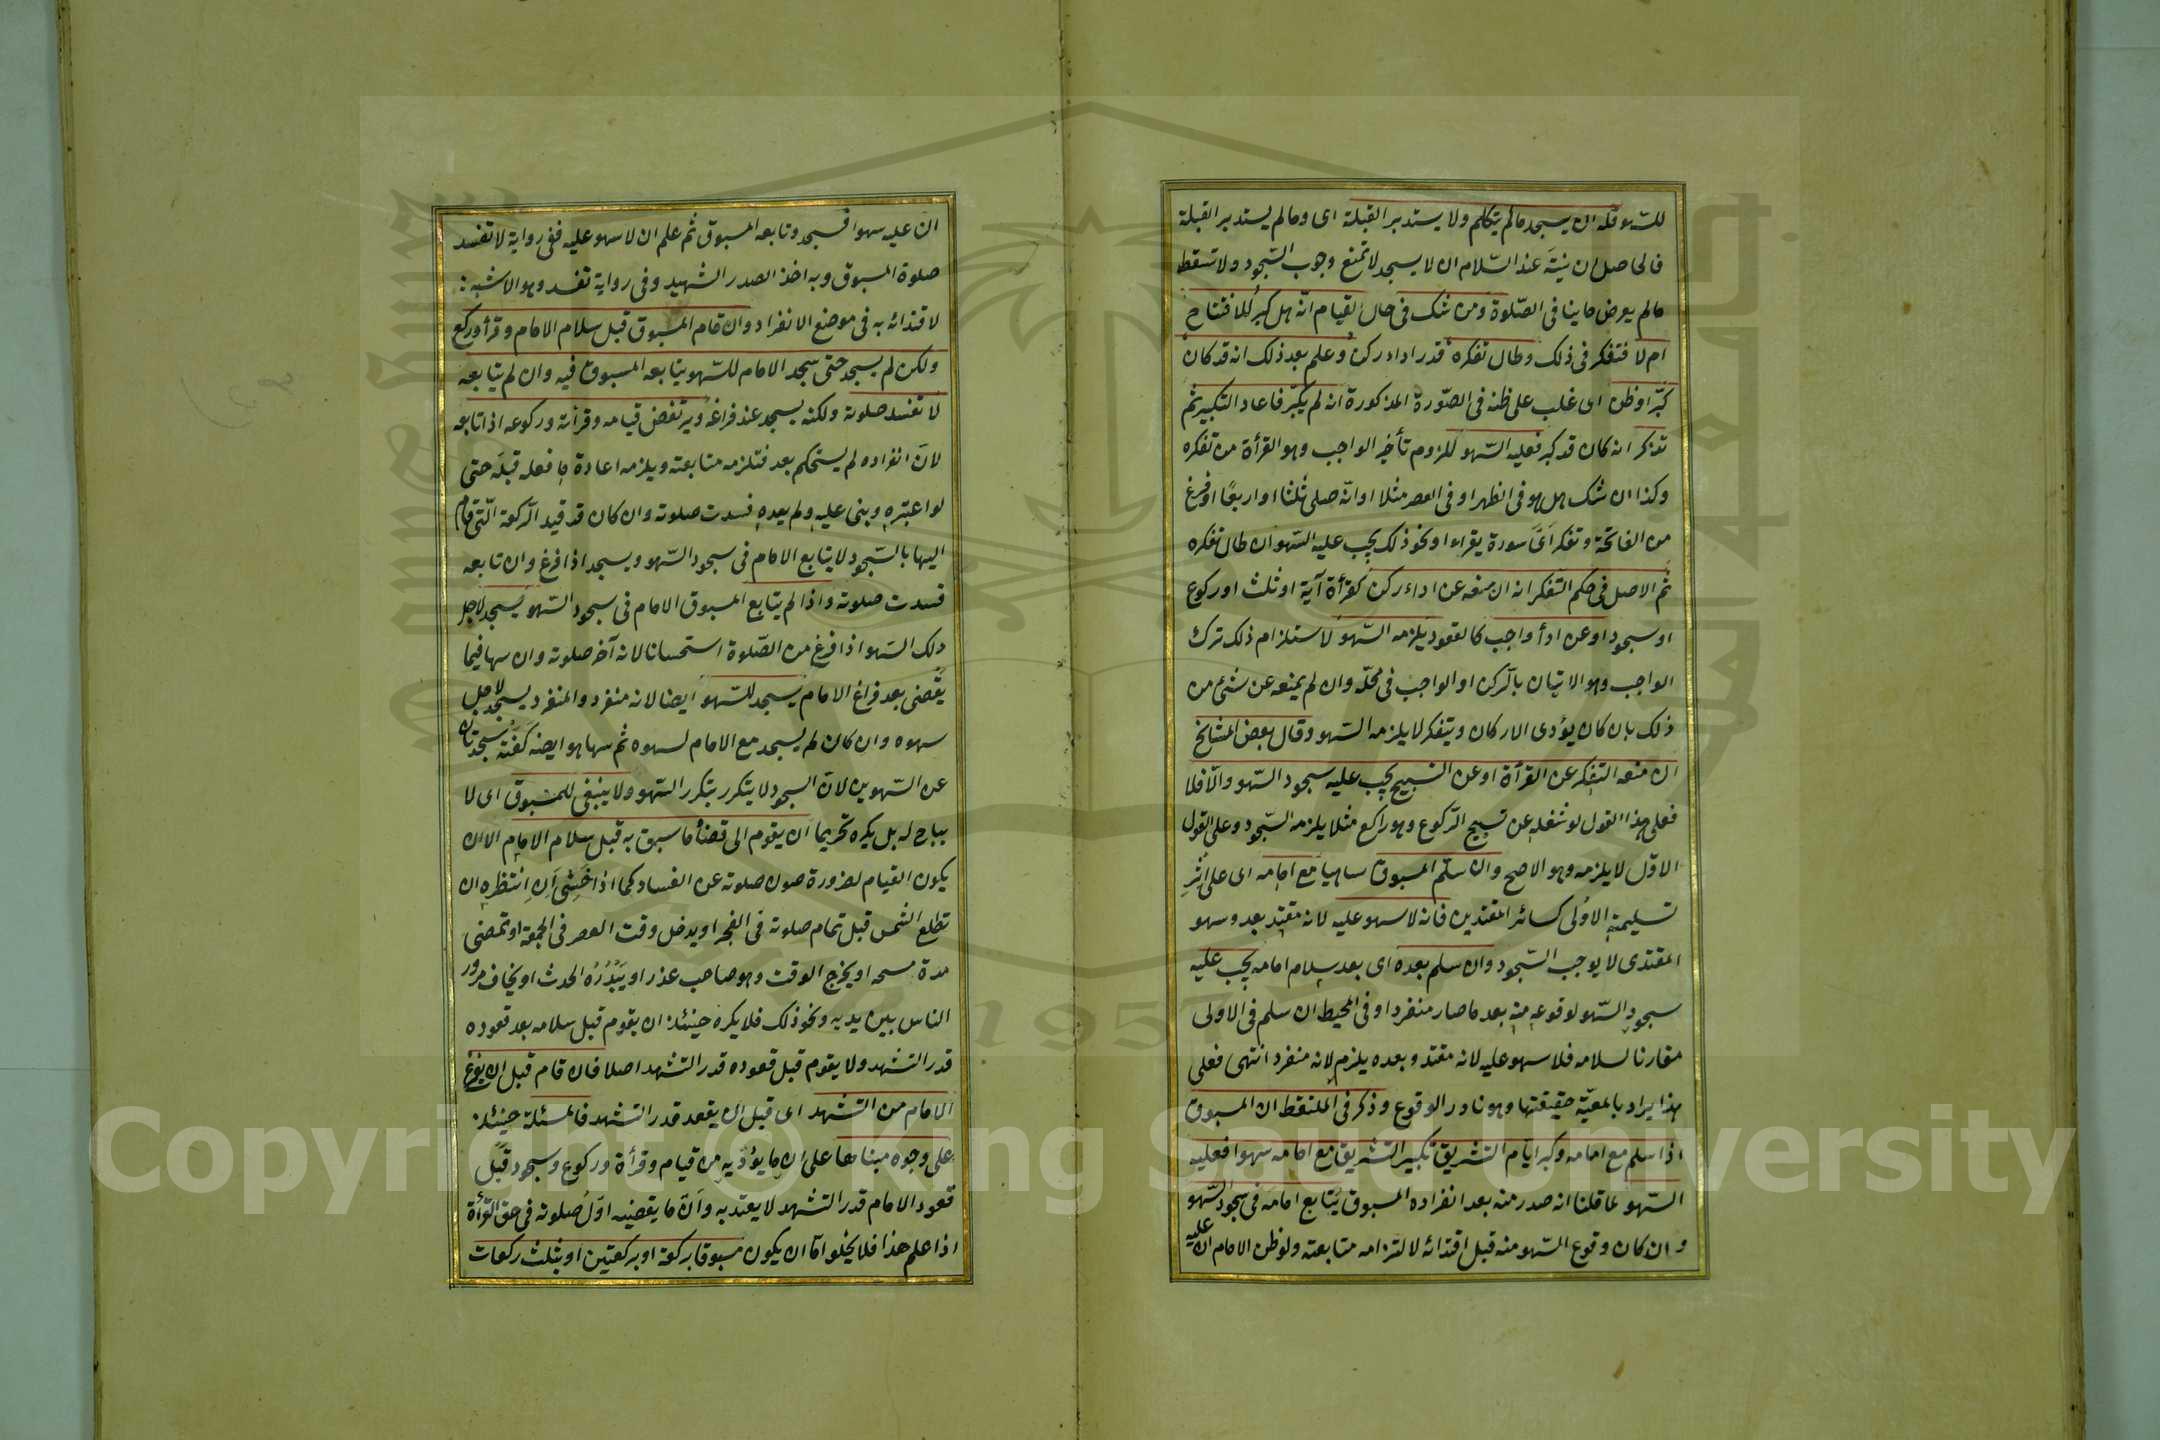 للسّهو فله ان يسجد مالم يتكلم ولا يستدبر القبلة اى ومالم يستدبر القبلة
فالحاصل ان نيّته عند السّلام ان لا يسجد لا تمنع وجوب السّجود ولا تسقط
مالم يعرض ماينافى الصّلوة ومن شك فى حال القيام انّه هل كبر للافتتاح
ام لا فتفكر فى ذلك وطال تفكره قدر اداء ركن وعلم بعد ذلك انه قد كان
كبّر او ظن اى غلب على ظنه فى الصّورة المذكورة انه لم يكبّر فاعاد التكبير ثم
تذكر انه كان قد كبر فعليه السّهو للزوم تأخير الواجب وهو القرأة من تفكره
وكذا ان شك هل هو فى الظهر او فى العصر مثلا او انّه صلى ثلثا او اربعًا او فرغ
من الفاتحة وتفكر اىّ سورة يقراء او نحو ذلك يجب عليه السّهو ان طال تفكره
ثم الاصل فى حكم التفكر انه ان منعه عن اداء ركن كقرأة آية او ثلث او ركوع
او سجود او عن ادأ واجب كالقعود يلزمه السّهو لاستلزام ذلك ترك
الواجب وهو الاتيان بالركن او الواجب فى محلّه وان لم يمنعه عن شئ من
ذلك بان كان يؤدى الاركان ويتفكر لا يلزمه السّهو وقال بعض المشايخ
ان منعه التفكر عن القرأة او عن التسبيح يجب عليه سجود السّهو والّا فلا
فعلى هذا القول لو شغله عن تسبيح الركوع وهو راكع مثلا يلزمه السّجود وعلى القول
الاوّل لا يلزمه وهو الاصح وان سلّم المسبوق ساهيا مع امامه اى على اثر
تسليمته الاولى كسائر المقتدين فانه لا سهو عليه لانه مقتد بعد وسهو
المقتدى لا يوجب السّجود وان سلم بعده اى بعد سلام امامه يجب عليه
سجود السّهو لوقوعه منه بعد ما صار منفردا وفى المحيط ان سلم فى الاولى
مقارنا لسلامه فلا سهو عليه لانه مقتد وبعده يلزم لانه منفرد انتهى فعلى
هذا يراد بالمعيّة حقيقتها وهو نادر الوقوع وذكر فى الملتقط ان المسبوق
اذا سلم مع امامه وكبر ايّام التشريق تكبير التشريق مع امامه سهوا فعليه
السّهو لما قلنا انه صدر منه بعد انفراده المسبوق يتابع امامه فى سجود السّهو
وان كان وقوع السّهو منه قبل اقتدائه لالتزامه متابعته ولو ظن الامام ان عليه
ان عليه سهوا فسجد وتابعه المسبوق ثم علم ان لا سهو عليه ففى رواية لا تفسد
صلوة المسبوق وبه اخذ الصدر الشهيد وفى رواية تفسد وهو الاشبه
لاقتدائه به فى موضع الانفراد وان قام المسبوق قبل سلام الامام وقرأ وركع
ولكن لم يسجد حتى سجد الامام للسّهو يتابعه المسبوق فيه وان لم يتابعه
لا تفسد صلوته ولكنه يسجد عند فراغه ويرتفض قيامه وقرأته وركوعه اذا تابعه
لانّ انفراده لم يستحكم بعد فتلزمه متابعته ويلزمه اعادة ما فعله قبله حتى
لو اعتبره وبنى عليه ولم يعده فسدت صلوته وان كان قد قيد الركعة الّتى قام
اليها بالسّجود لا يتابع الامام فى سجود السّهو ويسجد اذا فرغ وان تابعه
فسدت صلوته واذا لم يتابع المسبوق الامام فى سجود السّهو يسجد لاجل
ذلك السّهو اذا فرغ من الصّلوة استحسانا لانه آخر صلوته وان سها فيما
يقضى بعد فراغ الامام يسجد للسّهو ايضا لانه منفرد والمنفرد يسجد لاجل
سهوه وان كان لم يسجد مع الامام لسهوه ثم سها هو ايضا كفته سجدتان
عن السّهوين لانّ السجود لا يتكرر بتكرر السّهو ولا ينبغى للمسبوق اى لا
يباح له بل يكره تحريما ان يقوم الى قضأ ما سبق به قبل سلام الامام الا ان
يكون القيام لضرورة صون صلوته عن الفساد كما اذا خشى ان انتظره ان
تطلع الشمس قبل تمام صلوته فى الفجر او يدخل وقت العصر فى الجمعة او تمضى
مدة مسحه او يخرج الوقت وهو صاحب عذر او يبدره الحدث او يخاف مرور
الناس بين يديه ونحو ذلك فلا يكره حينئذ ان يقوم قبل سلامه بعد قعوده
قدر التشهد ولا يقوم قبل قعوده قدر التشهد اصلا فان قام قبل ان يفرغ
الامام من التشهد اى قبل ان يقعد قدر التشهد فالمسئلة حينئذ
على وجوه مبناها على ان ما يؤدّيه من قيام وقرأة وركوع وسجود قبل
قعود الامام قدر التشهد لا يعتد به وانّ ما يقضيه اوّل صلوته فى حق القرأة
اذا علم هذا فلا يخلو امّا ان يكون مسبوقا بركعة او بركعتين او بثلث ركعات
Copyright © King Saud University
1957